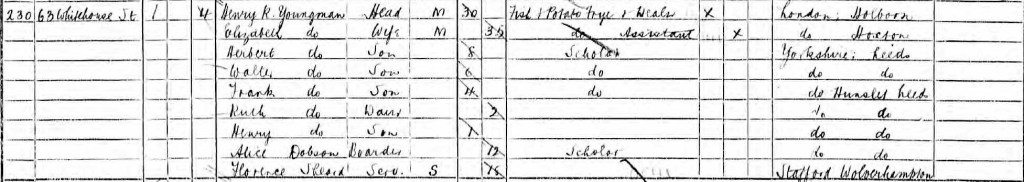 230 63 Whitehouse St 1 4 Henry R. Youngman Head M 30 Fish & Potato Frye & Dealer X London; Holborn
Elizabeth do Wife M 35 do Assistant X do Hoxton
Herbert do Son 8 Scholar Yorkshire; Leeds
Walter do Son 6 do do do
Frank do Son 4 do do Hunslet Leeds
Ruth do Daur 2 do do
Henry do Son 1 do do
Alice Dobson Boarder 12 Scholar do do
Florence Sheard Serv. S Stafford Wolverhampton